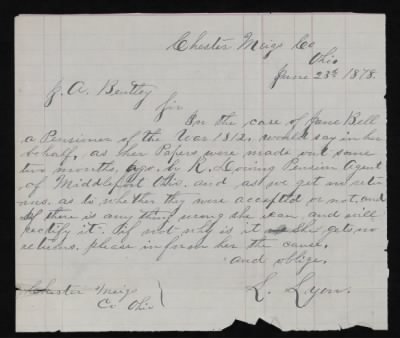 Chester Meigs Co
Ohio
June 23d 1878.
J. A. Bentley
Sir
In the case of Jane Bell
a Pensioner of the War 1812, would say in her
behalf, as her Papers were made out some
two months, ago, by R. Pension Agent
of Middleport Ohio. and as we get no retu
rns. as to whether they were accepted or not, and
If there is any thing wrong she can and will
rectify it. If not why is it she gets no
returns. please inform her the cause.
and oblige.
Chester Meigs
Co Ohio
L. Lyon.